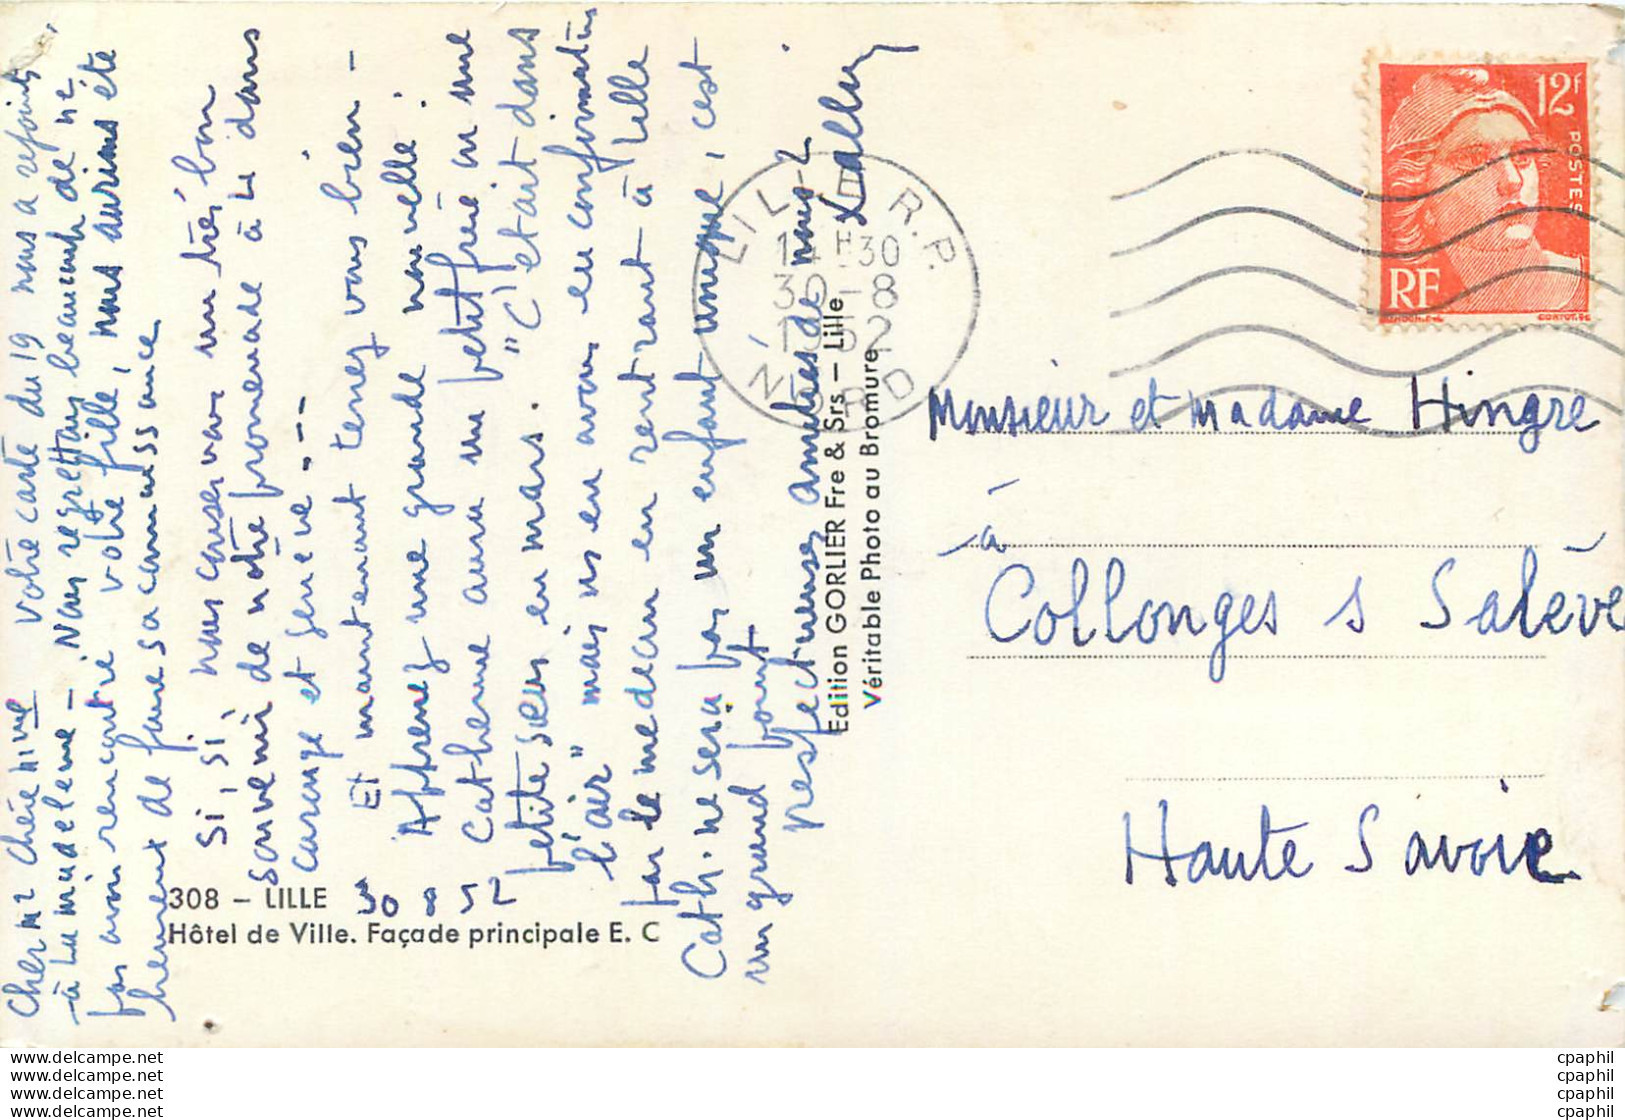 Cher Mr Chère Mme Votre carte du 19 nous a rejoints
à La Madeleine - Nous regrettons beaucoup de ne
pas avoir rencontré votre fille, nous aurions été
heureux de faire sa connaissance
Si, si, nous conservons un très bon
souvenir de notre promenade à 4 dans
Carouge et Genève ---
Et maintenant tenez vous bien -
Apprenez une grande nouvelle :
Catherine aura un petit frère ou une
petite sœur en mars. "C'était dans
l'air" mais ns en avons eu confirmation
par le médecin en rentrant à Lille
Cath. ne sera pas un enfant unique, c'est
un grand point
respectueuses amitiés de nous 2
308 – LILLE 30 8 52
Hôtel de Ville. Façade principale E. C
Edition GORLIER Fre & Srs – Lille
Véritable Photo au Bromure
LILLE R.P.
14H30
30-8
1952
NORD
12f
POSTES
RF
Monsieur et Madame Hingre
à
Collonges s Salève
Haute Savoie
www.delcampe.net
www.delcampe.net
www.delcampe.net
www.delcampe.net
cpaphil
cpaphil
cpaphil
cpaphil